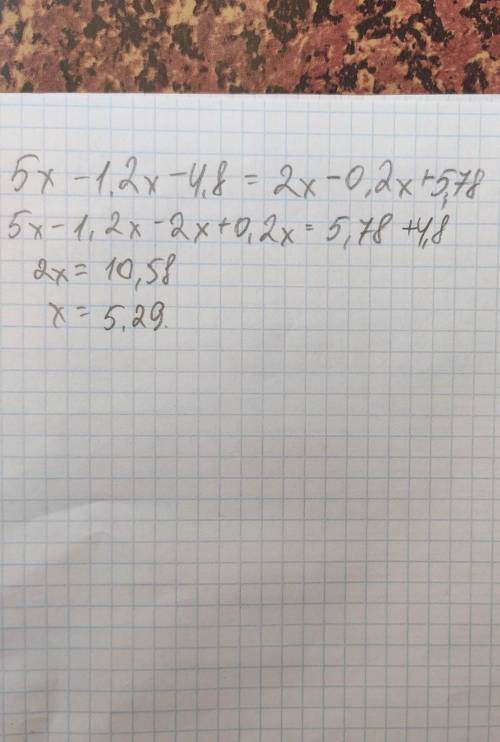 5x - 1,2x - 4,8 = 2x - 0,2x + 5,78
5x - 1,2x - 2x + 0,2x = 5,78 + 4,8
2x = 10,58
x = 5,29.